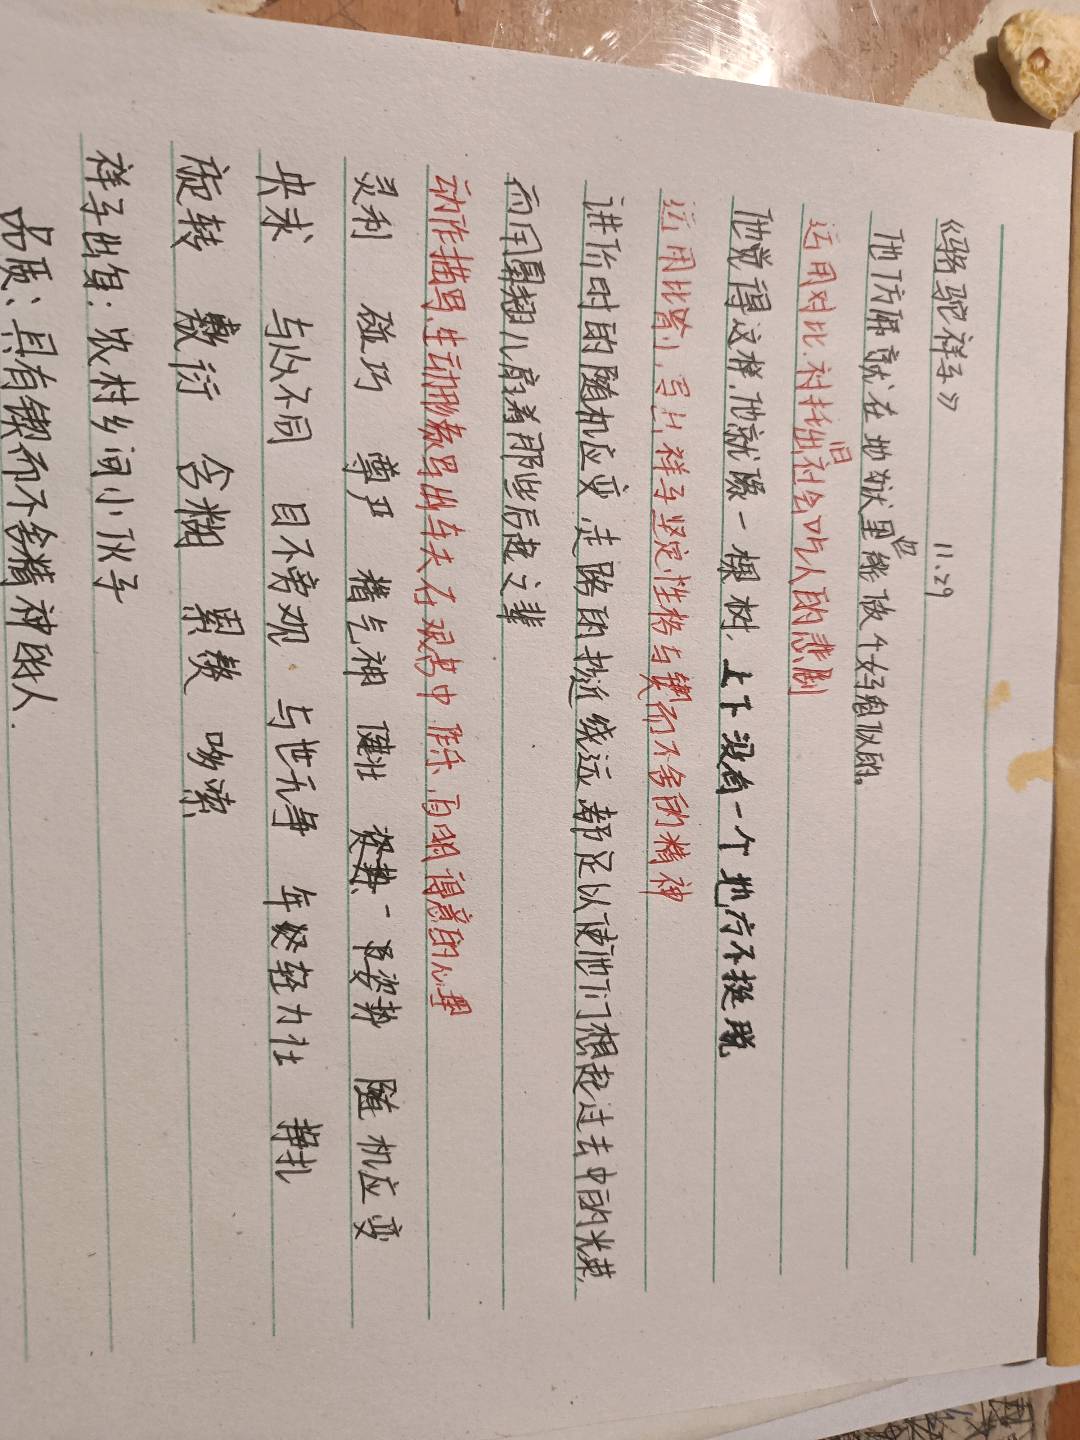 《骆驼祥子》 11.29
他仿佛就在地狱里也能做个好鬼似的。
运用对比.衬托出旧社会吃人的悲剧
他觉得这样.他就像一棵树.上下没有一个地方不挺脱
运用比喻,写出祥子坚定性格与锲而不舍的精神
讲价时的随机应变.走路的抄近绕远都足以使他们想起过去中的光荣,
而用鼻翅儿扇着那些后起之辈
动作描写.生动形象写出车夫在艰苦中作乐.自明得意的心理
灵利 碰巧 尊严 精气神 健壮 姿势 随机应变
央求 与众不同 目不旁观 与世无争 年轻力壮 挣扎
旋转 敷衍 含糊 累赘 哆嗦
祥子出身:农村乡间小伙子
品质:具有锲而不舍精神的人.